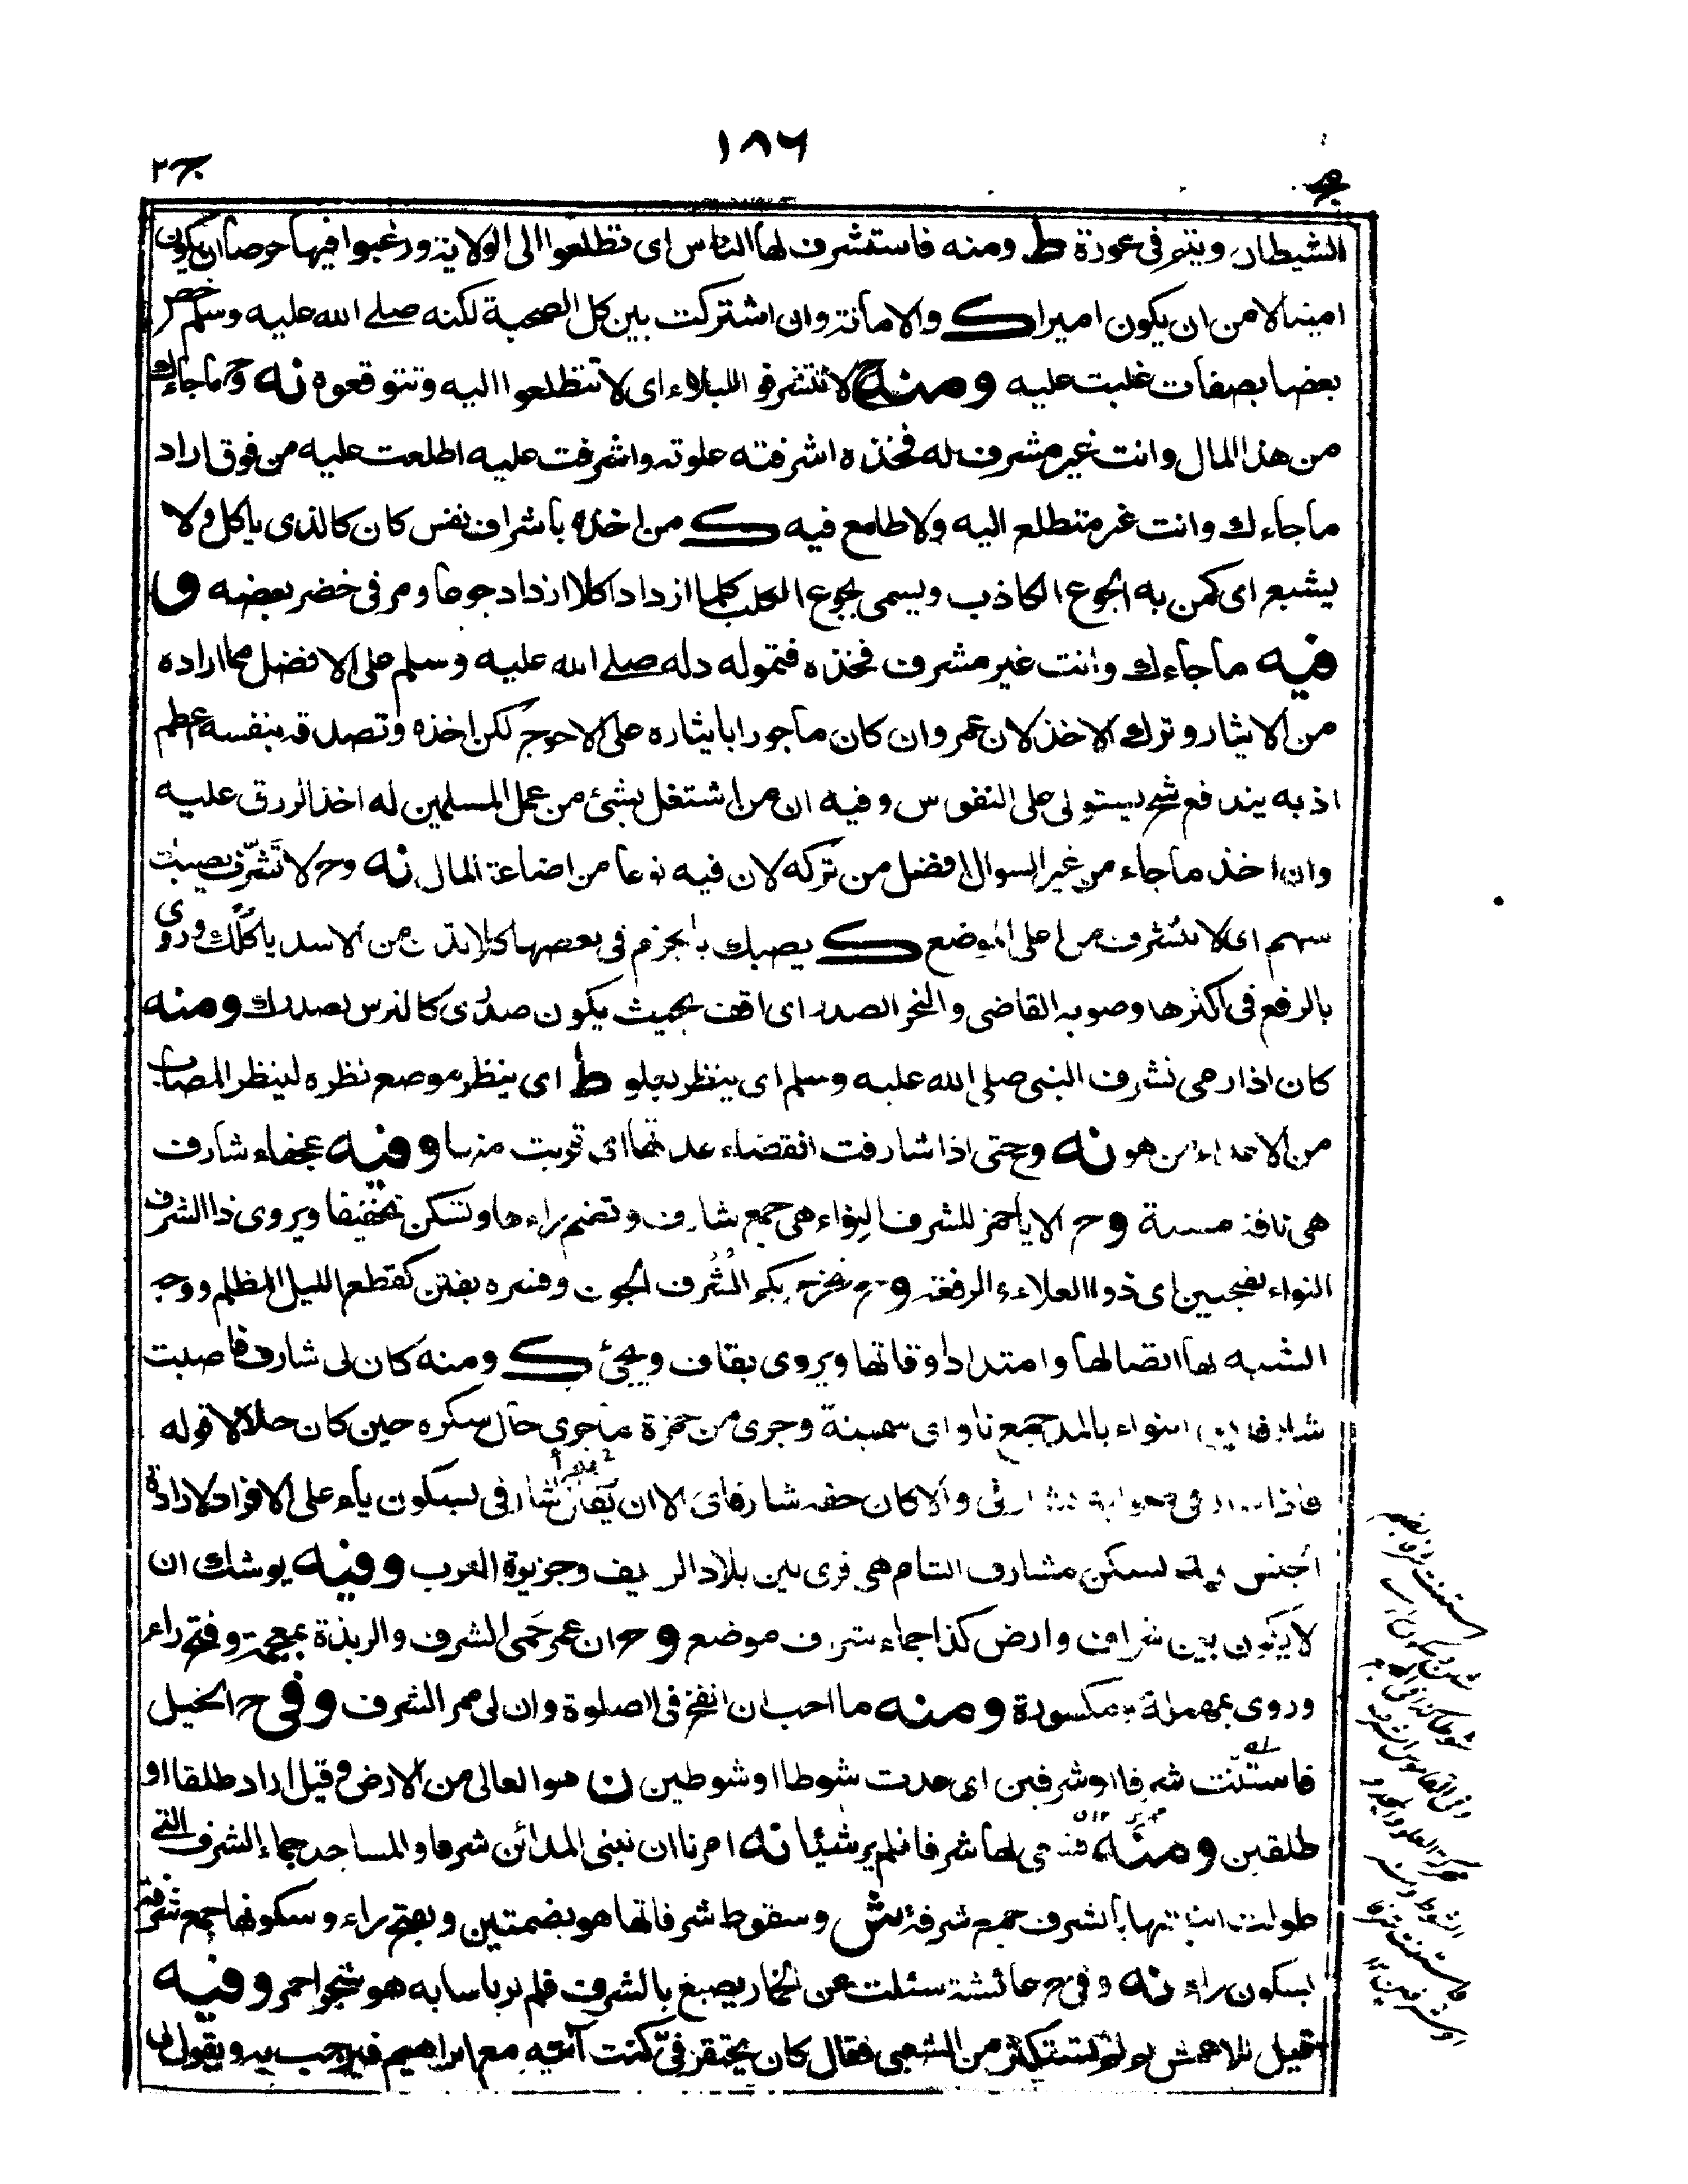 ١٨٦
ج ٢
الشيطان ويتم في عورة ط ومنه فاستشرف لها الناس اى تطلعوا الى الولاية ورغبوا فيها حرصا ان يكون
امينا لا من ان يكون اميرا ك والامانة وان اشتركت بين كل الصحبة لكنه صلے الله عليه وسلم خص
بعضا بصفات غلبت عليه ومنه لا تتشرفوا للبلاء اى لا تتطلعوا اليه وتتوقعوه نه وح ما جاءك
من هذا المال وانت غير مشرف له فخذه اشرفته علوته واشرفت عليه اطلعت عليه من فوق اراد
ما جاءك وانت غير متطلع اليه ولا طامع فيه ك من اخذه باشراف نفس كان كالذى ياكل ولا
يشبع اى كمن به الجوع الكاذب ويسمى بجوع الكلب كلما ازداد اكلا ازداد جوعا ومر في خضر بعضه و
فيه ما جاءك وانت غير مشرف فخذه فتموله دله صلے الله عليه وسلم على الافضل مما اراده
من الايثار وترك الاخذ لان عمر وان كان ماجورا بايثاره على الاحوج لكن اخذه وتصدقه بنفسه اعظم
اذ به يندفع شح يستولى على النفوس وفيه ان من اشتغل بشئ من عمل المسلمين له اخذ الرزق عليه
وان اخذ ما جاء من غير السوال افضل من تركه لان فيه نوعا من اضاعة المال نه وح لا تشرف يصبك
سهم اى لا تتشرف من اعلى الموضع ك يصبك بالجزم في بعضها كلا تدن من الاسد ياكلك وروى
بالرفع في اكثرها وصوبه القاضى والنحر الصدر اى اقف بحيث يكون صدرى كالترس بصدرك ومنه
كان اذا رمى تشرف النبى صلى الله عليه وسلم اى ينظر بعلو ط اى ينظر موضع نظره لينظر المصاب
من الاعداء من هو نه وح حتى اذا شارفت انقضاء عدتها اى قربت منها وفيه عجفاء شارف
هى ناقة مسنة وح الا ياحمز للشرف النواء هى جمع شارف وتضم راءها وتسكن تخفيفا ويروى ذا الشرف
النواء بفتحتين اى ذوا العلاء والرفعة وح تخرج بكم الشرف الجون وفسره بفتن كقطع الليل المظلم ووجه
الشبه لها اتصالها وامتداد اوقاتها ويروى بقاف ويجئ ك ومنه كان لى شارف فاصبت
شارفا النواء بالمد جمع ناو اى سمينة وجرى من حمزة ما جرى حال سكره حين كان حلالا قوله
وألا كان حقه شارفاى الا ان يقرأ شارفى بسكون ياء على الافراد لارادة
الجنس نه لسكن مشارف الشام هى قرى بين بلاد الريف وجزيرة العرب وفيه يوشك ان
لا يكون بين شراف وارض كذا جماء شرف موضع وح ان عمر حمى الشرف والربذة بمعجمة وفتح راء
وروى بمهملة مكسورة ومنه ما احب ان انفخ في الصلوة وان لى ممر الشرف وفي ح الخيل
فاستنت شرفا او شرفين اى عدت شوطا او شوطين ن هو العالى من الارض وقيل اراد طلقا او
طلقين ومنه لها شرفا فلم ير شيئا نه امرنا ان نبنى المدائن شرفا والمساجد جما الشرف التى
طولت ابنيتها بالشرف جمع شرفة ش وسقوط شرفاتها هو بضمتين وبفتح راء وسكونها جمع شرفة
بسكون راء نه وفي ح عائشة سئلت عن الخمار يصبغ بالشرف فلم تر باسا به هو شجر احمر وفيه
قيل للاعمش لم لم تستكثر من الشعبى فقال كان يحتقرنى كنت آتيه مع ابراهيم فيرحب به ويقول لى